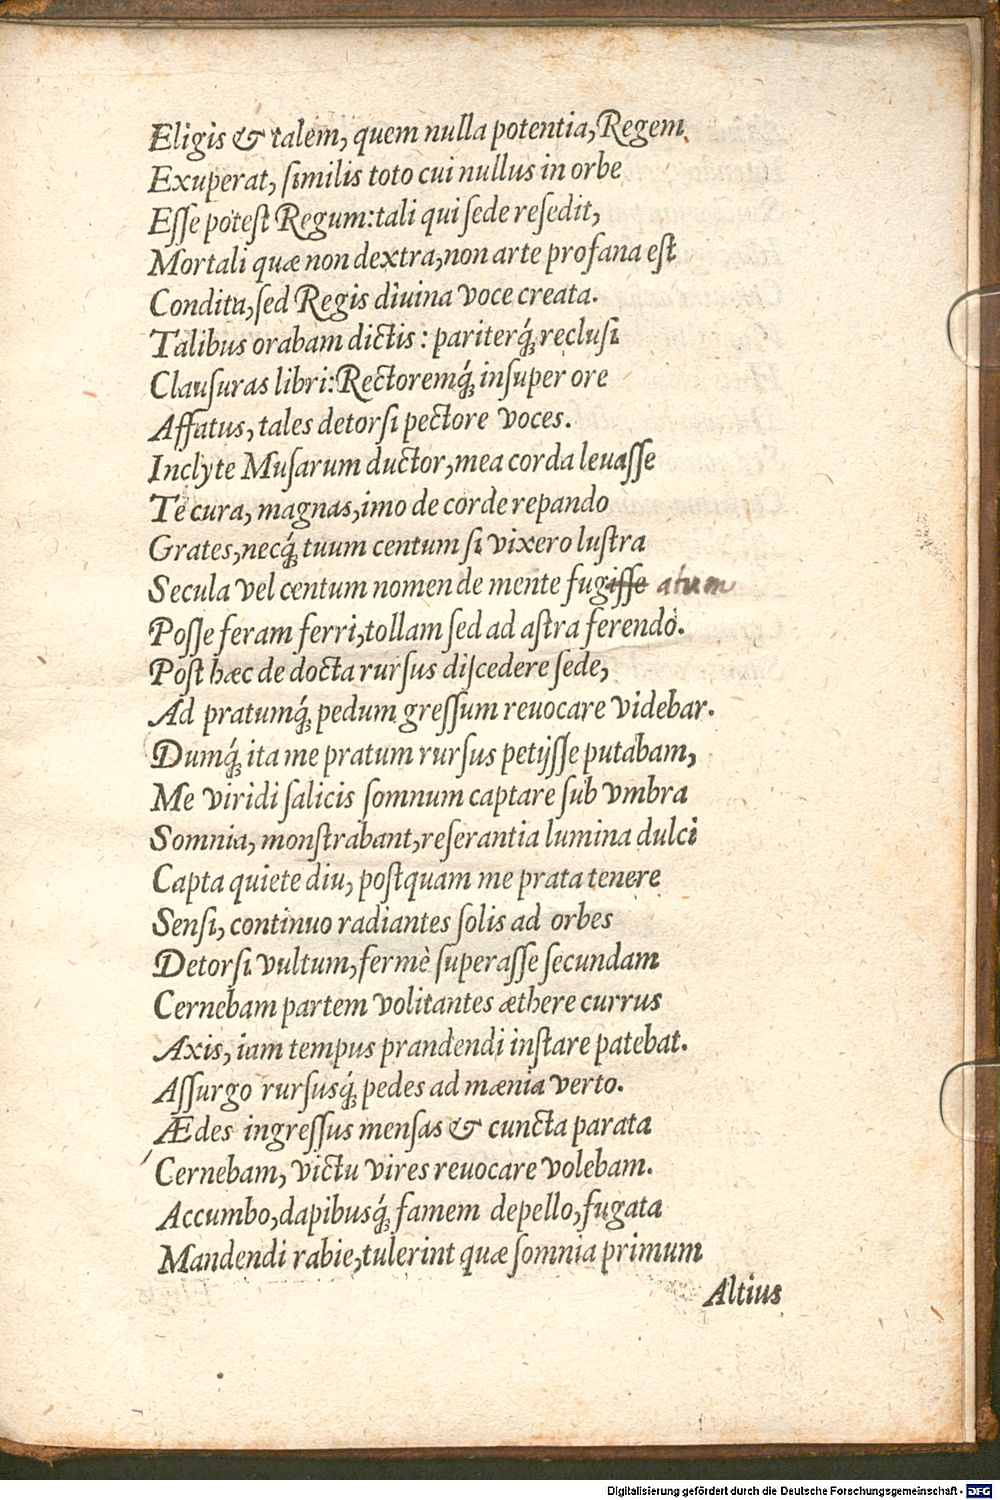 Eligis & talem, quem nulla potentia, Regem
Exuperat, ſimilis toto cui nullus in orbe
Eſſe poteſt Regum: tali qui ſede reſedit,
Mortali quæ non dextra, non arte profana eſt
Condita, ſed Regis diuina voce creata.
Talibus orabam dictis: pariterq́; recluſi
Clauſuras libri: Rectoremq́; inſuper ore
Affatus, tales detorſi pectore voces.
Inclyte Muſarum ductor, mea corda leuaſſe
Te cura, magnas, imo de corde repando
Grates, necq́; tuum centum ſi vixero luſtra
Secula vel centum nomen de mente fugiſſe atum
Poſſe feram ferri, tollam ſed ad aſtra ferendo.
Poſt hæc de docta rurſus diſcedere ſede,
Ad pratumq́; pedum greſſum reuocare videbar.
Dumq́; ita me pratum rurſus petijſſe putabam,
Me viridi ſalicis ſomnum captare ſub vmbra
Somnia, monſtrabant, reſerantia lumina dulci
Capta quiete diu, poſtquam me prata tenere
Senſi, continuo radiantes ſolis ad orbes
Detorſi vultum, fermè ſuperaſſe ſecundam
Cernebam partem volitantes æthere currus
Axis, iam tempus prandendi inſtare patebat.
Aſſurgo rurſusq́; pedes ad mænia verto.
Ædes ingreſſus menſas & cuncta parata
Cernebam, victu vires reuocare volebam.
Accumbo, dapibusq́; famem depello, fugata
Mandendi rabie, tulerint quæ ſomnia primum
Altius
Digitalisierung gefördert durch die Deutsche Forschungsgemeinschaft - DFG